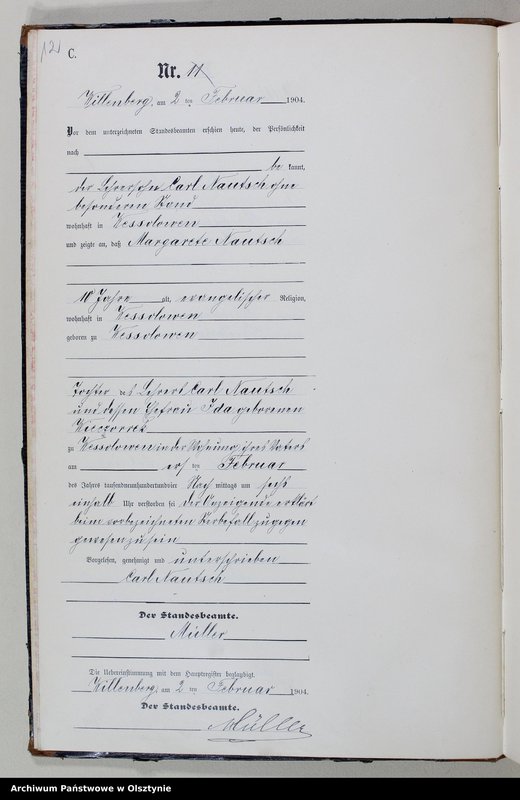 121
C.
Nr. 11
Willenberg, am 2 ten Februar 1904.
Vor dem unterzeichneten Standesbeamten erschien heute, der Persönlichkeit
nach
be kannt,
der Lehrersohn Carl Nautsch ohne
besonderen Stand
wohnhaft in Wessolowen
und zeigte an, daß Margarete Nautsch
10 Jahre alt, evangelischer Religion,
wohnhaft in Wessolowen
geboren zu Wessolowen
Tochter des Lehrers Carl Nautsch
und dessen Ehefrau Ida geborenen
zu Wessolowen in der Wohnung ihres Vaters
am ersten Februar
des Jahres tausendneunhundertundvier Nachmittags um sechs
einhalb Uhr verstorben sei der Anzeigende erklärt
beim vorbezeichneten Sterbefall zugegen
gewesen zu sein
Vorgelesen, genehmigt und unterschrieben
Carl Nautsch
Der Standesbeamte.
Müller
Die Uebereinstimmung mit dem Hauptregister beglaubigt.
Willenberg, am 2 ten Februar 1904.
Der Standesbeamte.
Müller
Archiwum Państwowe w Olsztynie